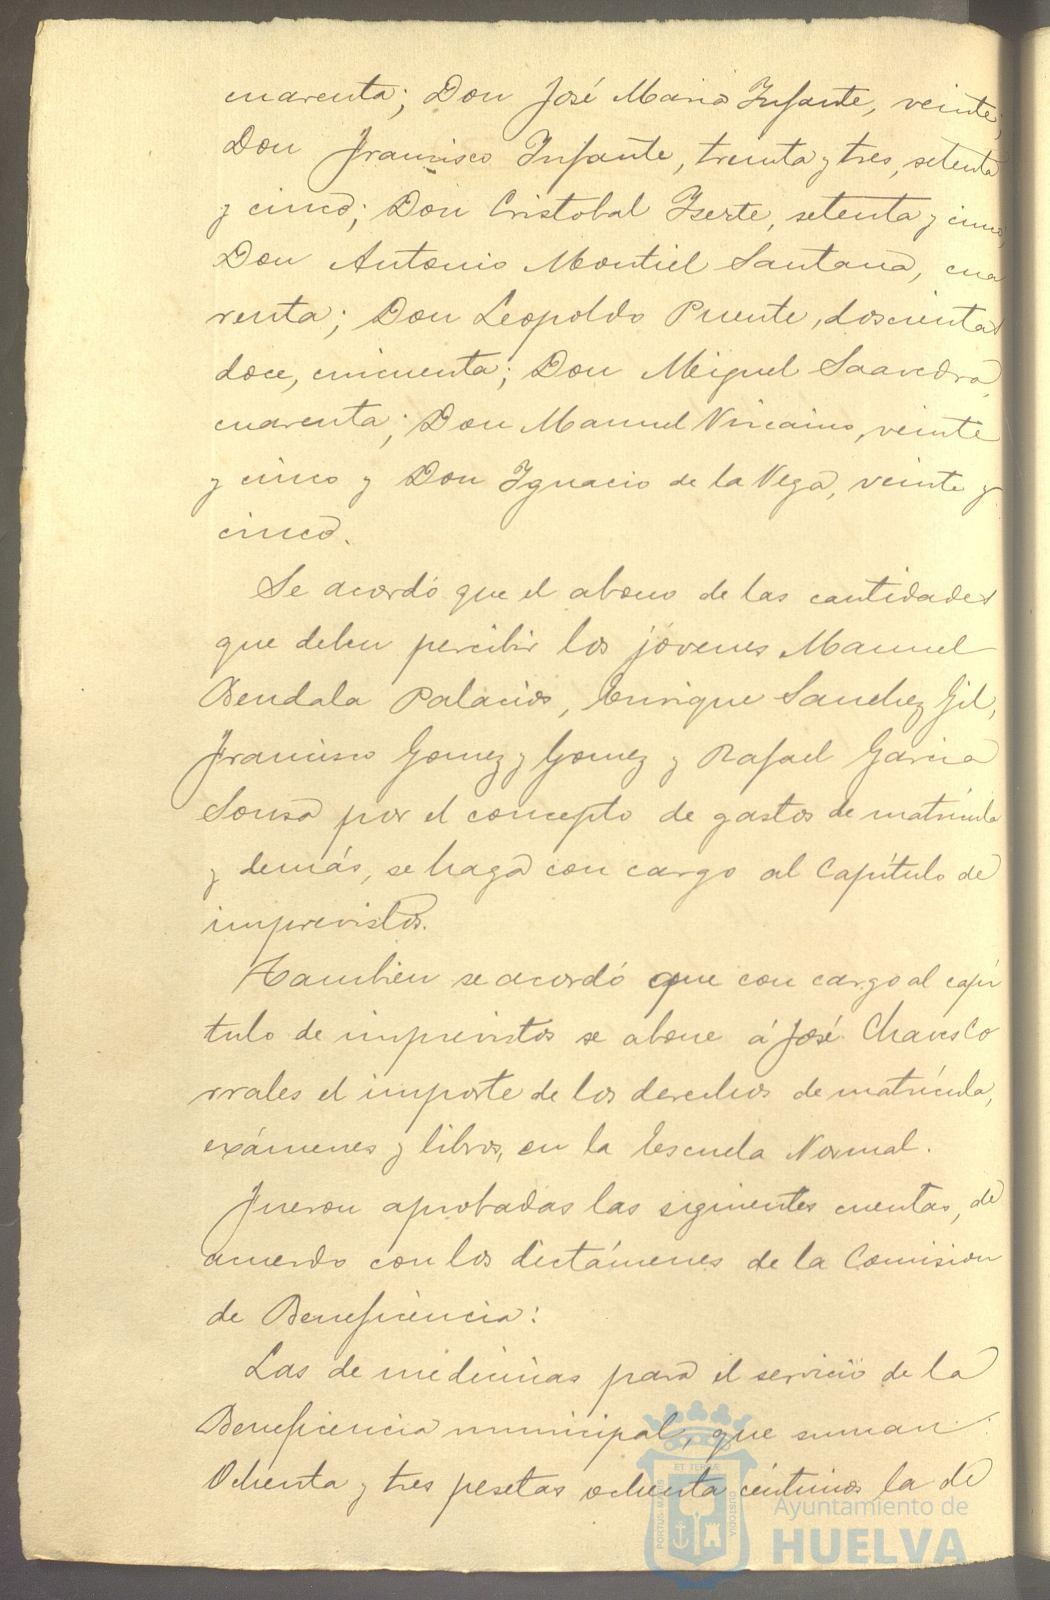 cuarenta; Don José Maria Infante, veinte;
Don Francisco Infante, treinta y tres, setenta
y cinco; Don Cristobal Iserte, setenta y cinco;
Don Antonio Montiel Santana, cua
renta; Don Leopoldo Puente, doscientas
doce, cincuenta; Don Miguel Saavedra,
cuarenta; Don Manuel Vizcaino, veinte
y cinco y Don Ignacio de la Vega, veinte y
cinco.
Se acordó que el abono de las cantidades
que deben percibir los jóvenes Manuel
Bendala Palacios, Enrique Sanchez Gil,
Francisco Gomez y Gomez y Rafael Garcia
Sousa por el concepto de gastos de matrícula
y demás, se haga con cargo al Capítulo de
imprevistos.
Tambien se acordó que con cargo al capí
tulo de imprevistos se abone á José Chaves Co
rrales el importe de los derechos de matrícula,
exámenes y libros, en la Escuela Normal.
Fueron aprobadas las siguientes cuentas, de
acuerdo con los dictámenes de la Comision
de Beneficencia:
Las de medicinas para el servicio de la
Beneficencia municipal, que suman
Ochenta y tres pesetas ochenta céntimos la de
ET TERRAE
PORTUS MARIS
CUSTODIA
Ayuntamiento de
HUELVA